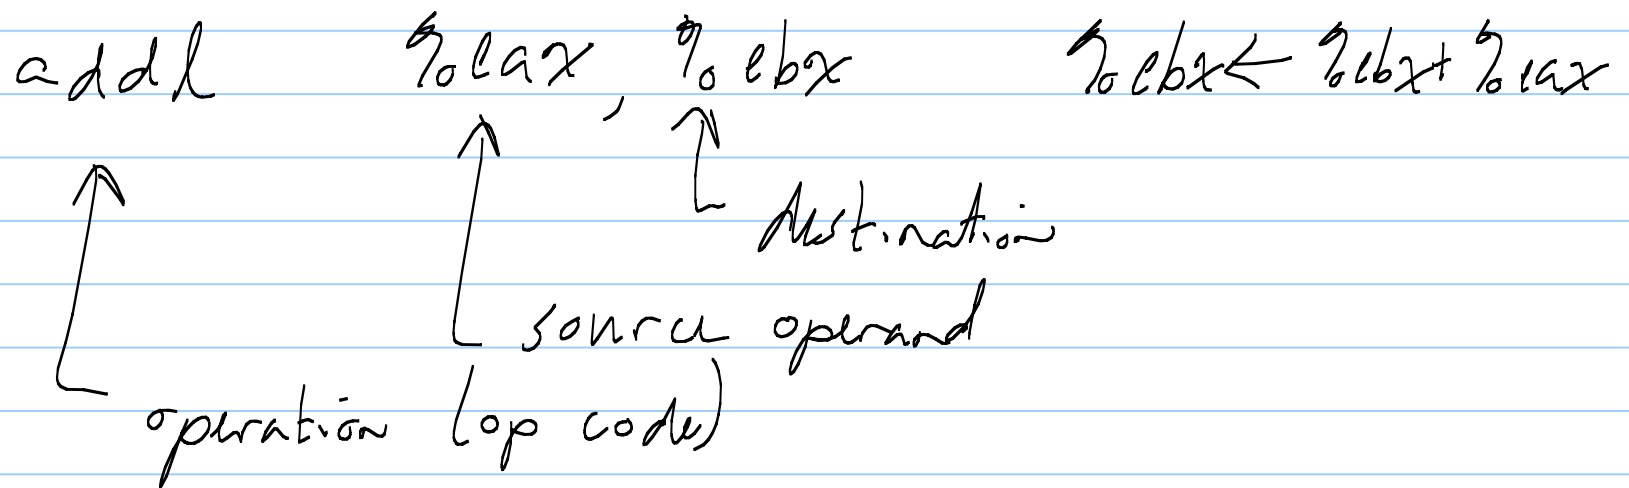 addl %eax, %ebx %ebx ← %ebx + %eax
destination
source operand
operation (op code)